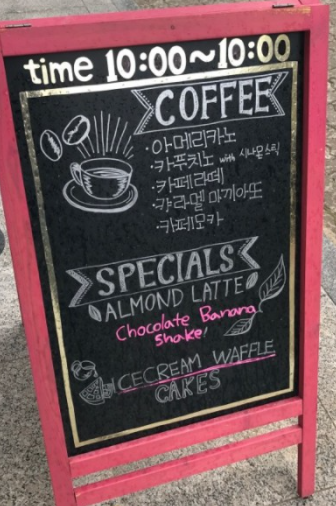 time 10:00~10:00
COFFEE
·아메리카노
·카푸치노 with 시나몬스틱
·카페라떼
·캬라멜 마끼아또
·카페모카
SPECIALS
ALMOND LATTE
Chocolate Banana
Shake!
ICECREAM WAFFLE
CAKES